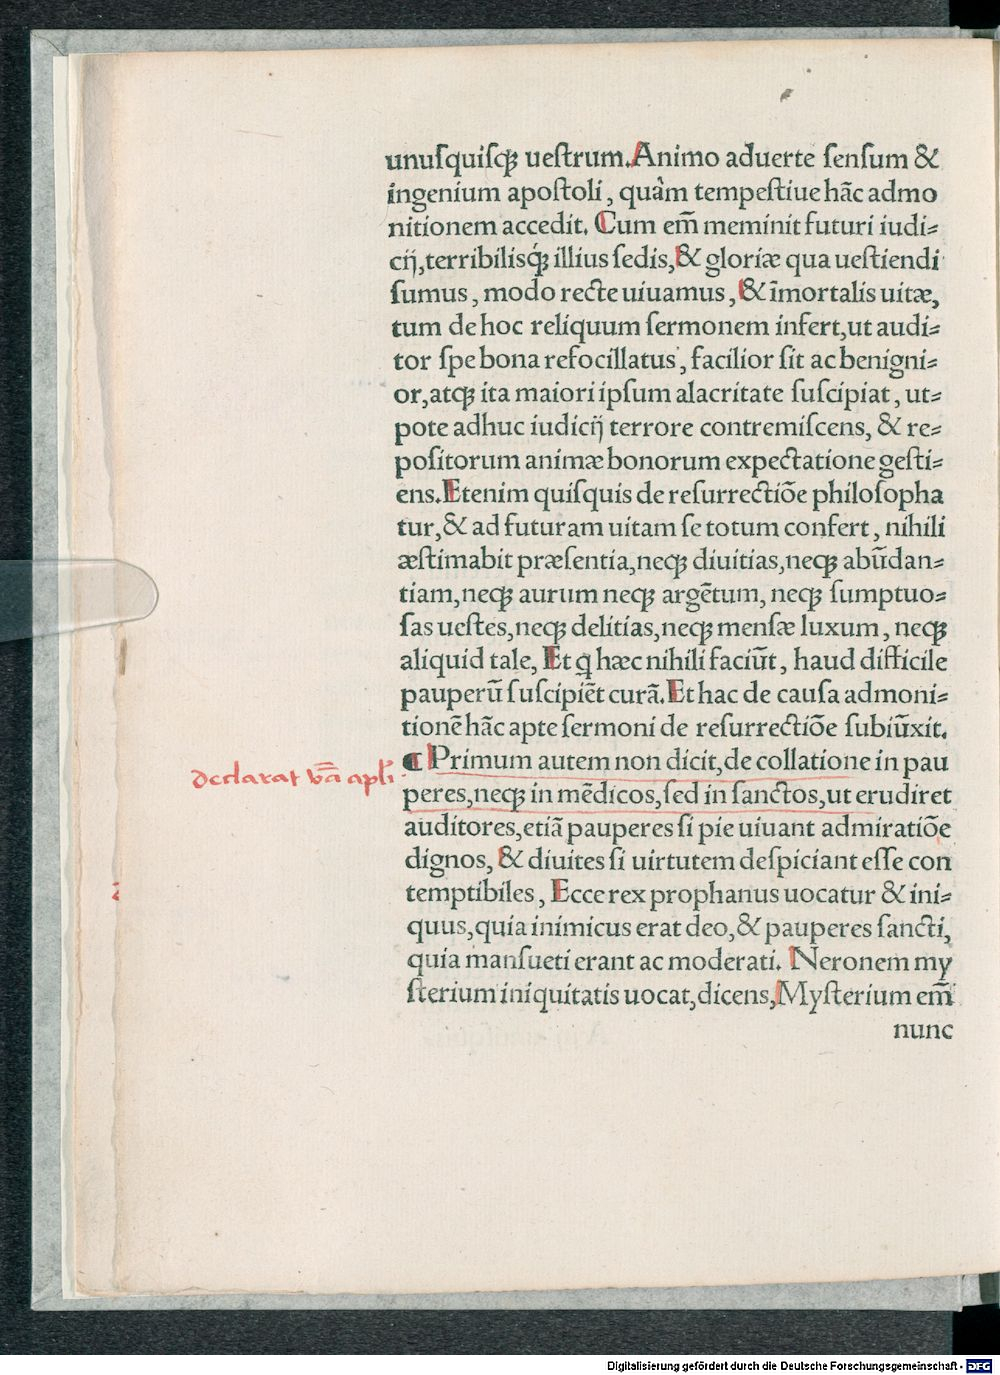 unuſquiſqꝫ ueſtrum. Animo aduerte ſenſum &
ingenium apoſtoli, quàm tempeſtiue hāc admo
nitionem accedit. Cum em̄ meminit futuri iudi⸗
cij, terribiliſqꝫ́ illius ſedis, & gloriæ qua ueſtiendi
ſumus, modo recte uiuamus, & īmortalis uitæ,
tum de hoc reliquum ſermonem infert, ut audi⸗
tor ſpe bona refocillatus, facilior ſit ac benigni⸗
or, atqꝫ ita maiori ipſum alacritate ſuſcipiat, ut⸗
pote adhuc iudicij terrore contremiſcens, & re⸗
poſitorum animæ bonorum expectatione geſti⸗
ens. Etenim quiſquis de reſurrectiōe philoſopha
tur, & ad futuram uitam ſe totum confert, nihili
æſtimabit præſentia, neqꝫ diuitias, neqꝫ abūdan⸗
tiam, neqꝫ aurum neqꝫ argētum, neqꝫ ſumptuo⸗
ſas ueſtes, neqꝫ delitias, neqꝫ menſæ luxum, neqꝫ
aliquid tale, Et q̄ hæc nihili faciūt, haud difficile
pauperū ſuſcipiēt curā. Et hac de cauſa admoni⸗
tionē hāc apte ſermoni de reſurrectiōe ſubiūxit.
declarat v̄ba apl̄i
¶ Primum autem non dicit, de collatione in pau
peres, neqꝫ in mēdicos, ſed in ſanctos, ut erudiret
auditores, etiā pauperes ſi pie uiuant admiratiōe
dignos, & diuites ſi uirtutem deſpiciant eſſe con
temptibiles, Ecce rex prophanus uocatur & ini⸗
quus, quia inimicus erat deo, & pauperes ſancti,
quia manſueti erant ac moderati. Neronem my
ſterium iniquitatis uocat, dicens, Myſterium em̄
nunc
Digitalisierung gefördert durch die Deutsche Forschungsgemeinschaft - DFG